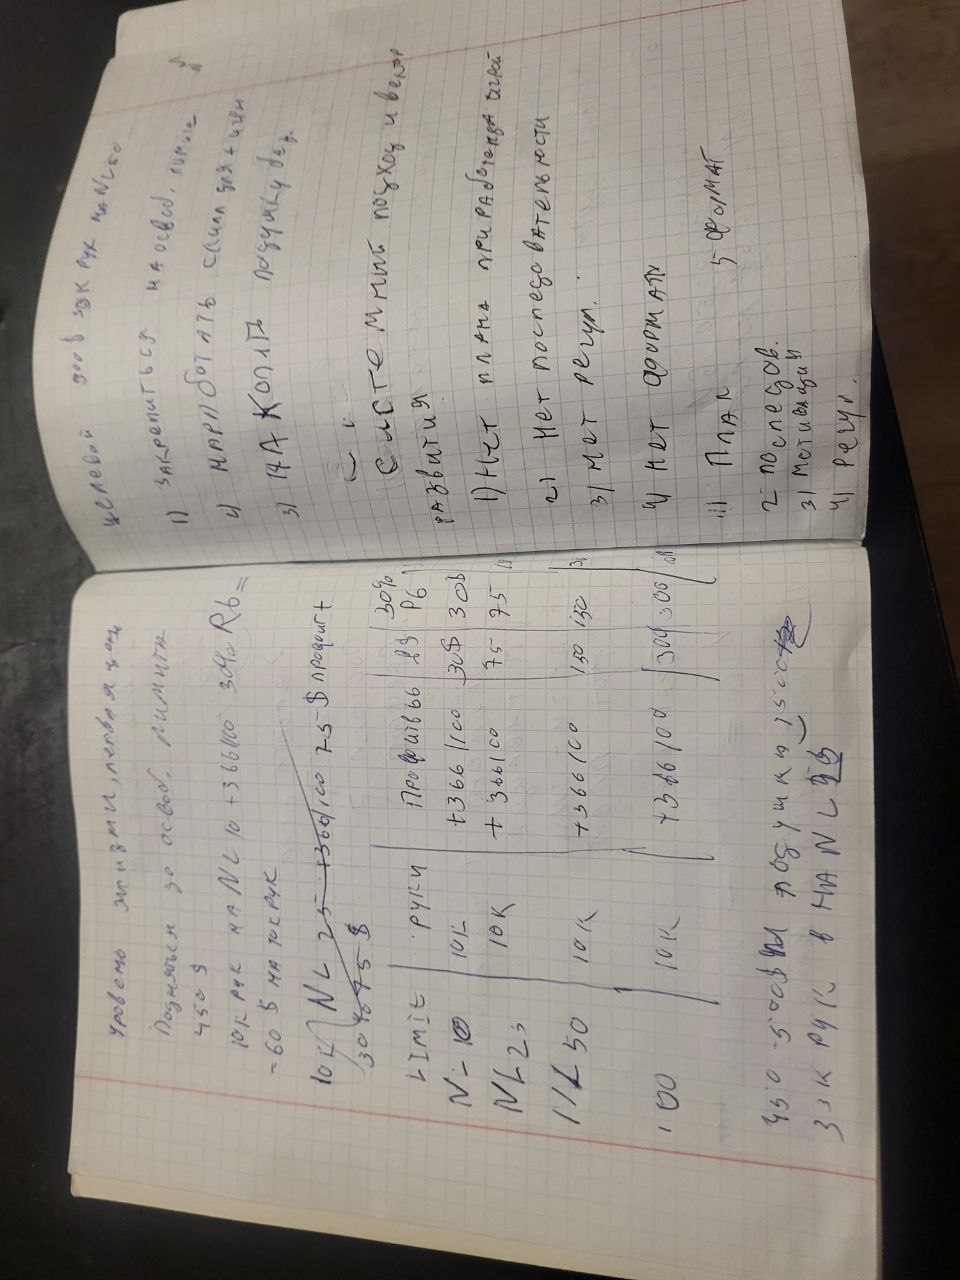 уровень жизни, первая цель
Поднимаем до освоб. лимита
450 $
10К рук на NL 10 +3бб/100 30% Rb =
= 60 $ на 10К рук
10К NL 25 +3бб/100 75 $ профит +
30% 75 $
LIMIT руки Профит вбб в $ 30% РБ
NL 10 10К +3бб/100 30$ 30$
NL 25 10К +3бб/100 75 75
NL 50 10К +3бб/100 150 150
100 10К +3бб/100 300 300
450 500 подушки 1500
33К рук в НА NL 25
целевой рук на NL 50
1) закрепиться на освоб. лимите
2) наработать скилл для + игры
3) НАКОПИТЬ подушку без.
Системный подход и вектор
развития
1) Нет плана при работе над игрой
2) Нет последовательности
3) Нет регул.
4) Нет формата
1) План 5 формат
2 последов.
3) Мотивация
4) Регул.